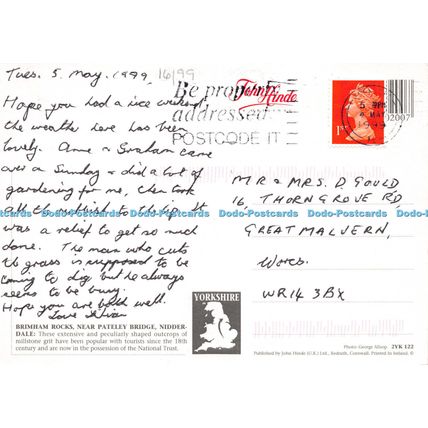 Tues. 5. May. 1999.
16/99
Hope you had a nice weekend
the weather here has been
lovely. Anne & Graham came
over on Sunday & did a lot of
gardening for me, then took
all the rubbish to the tip. It
was a relief to get so much
done. The man who cuts
the grass is supposed to be
coming to dig but he always
seems to be busy.
Hope you are both well.
Love
BRIMHAM ROCKS, NEAR PATELEY BRIDGE, NIDDER-
DALE: These extensive and peculiarly shaped outcrops of
millstone grit have been popular with tourists since the 18th
century and are now in the possession of the National Trust.
YORKSHIRE
John Hinde
Be properly
addressed
POSTCODE IT
1ST
02007
MR & MRS. D. GOULD
16, THORNGROVE RD,
GREAT MALVERN,
Worcs.
WR14 3BX
Photo: George Allsop
2YK 122
Published by John Hinde (U.K.) Ltd., Redruth, Cornwall. Printed in Ireland. ©
Dodo-Postcards Dodo-Postcards Dodo-Postcards Dodo-Postcards Dodo-Postcards